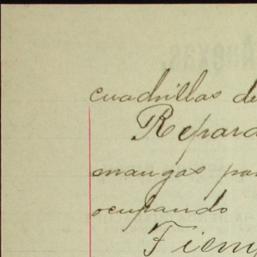 cuadrillas de
Repara
mangas pa
ocupando
Tiem